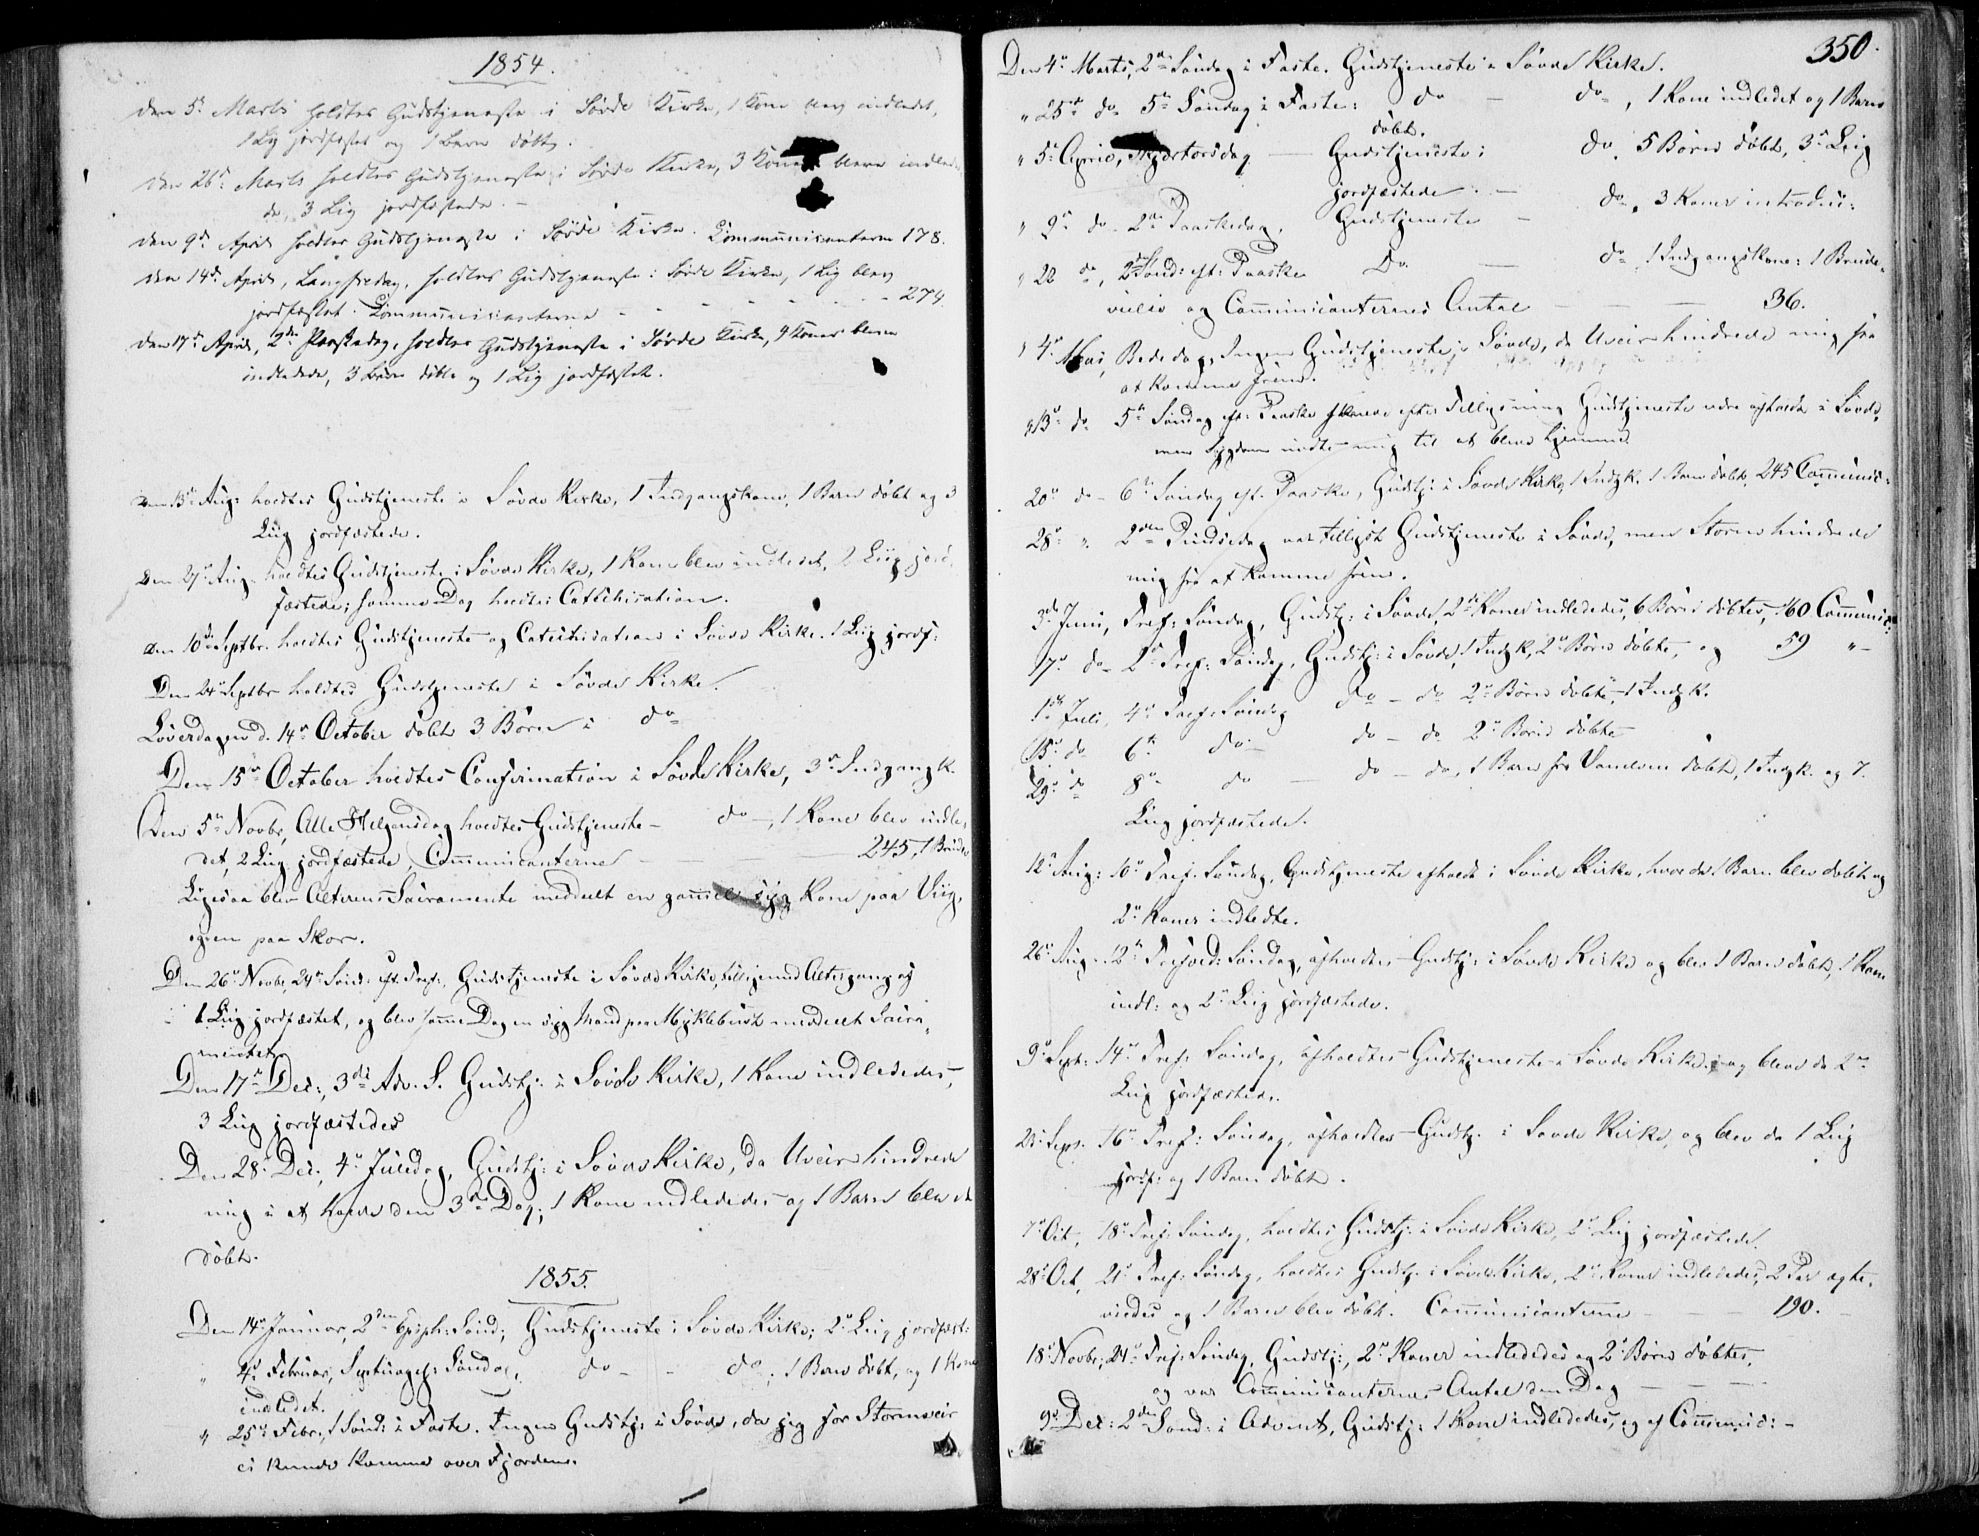 1854.
den 5te Marts holdtes Gudstjeneste i Søvde Kirke, 1 Kone blev indledet,
1 Lig jordfæstet og 1 Barn døbt.
den 26de Marts holdtes Gudstjeneste i Søvde Kirke, 3 Koner bleve indlede-
de, 3 Lig jordfæstede. -
den 9de April holdtes Gudstjeneste i Søvde Kirke. Communicanterne 178.
den 14de April, Langfredag, holdtes Gudstjeneste i Søvde Kirke, 1 Lig blev
jordfæstet. Communicanterne - - - - - - 274.
den 17de April, 2den Paaskedag, holdtes Gudstjeneste i Søvde Kirke, 4 Koner bleve
indledede, 3 Børn døbte og 1 Lig jordfæstet.
Den 13de Aug: holdtes Gudstjeneste i Søvde Kirke, 1 Indgangskone, 1 Barn døbt og 3
Liig jordfæstede.
Den 27de Aug. holdtes Gudstjeneste i Søvde Kirke, 1 Kone blev indledet, 2 Liig jord-
fæstede; samme Dag holdtes Catechisation.
Den 10de Septbr. holdtes Gudstjeneste og Catechisation i Søvde Kirke. 1 Liig jordf:
Den 24de Septbr holdtes Gudstjeneste i Søvde Kirke.
Løverdagen d. 14de October døbt 3 Børn i do
Den 15de October holdtes Confirmation i Søvde Kirke, 3de Indgangk.
Den 5te Novbr, Alle Helgensdag holdtes Gudstjeneste - do -, 1 Kone blev indle-
det, 2 Liig jordfæstede. Communicanterne - 245, 1 Brudev
Ligesaa blev Alterens Sacramente meddeelt en gammel syg Kone paa Viig,
og en paa Skor.
Den 26de Novbr, 24de Sønd: eft. Tref:, Gudstjeneste i Søvde Kirke, tilligemed Altergang og
1 Liig jordfæstet, og blev samme Dag en syg Mand paa Myklebust meddeelt Sacra-
mentet
Den 17de Dec:, 3die Adv. S. Gudstj: i Søvde Kirke, 1 Kone indlededes,
3 Liig jordfæstedes
Den 28de Dec:, 4de Juledag, Gudstj: i Søvde Kirke, da Uveir hindrede
mig i at holde den 3die Dag; 1 Kone indlededes og 1 Barn blev
døbt.
1855.
Den 14de Januar, 2den Epiph: Sønd:, Gudstjeneste i Søvde Kirke; 2de Liig jordfæst:
" 4de Februar, Septuages: Søndag, do - - do; 1 Barn døbt, og 1 Kone
indledet.
" 25de Febr., 1 Sønd: i Faste. Ingen Gudstj: i Søvde, da jeg for Stormveir
ei kunde komme over Fjorden.
350.
Den 4de Marts, 2den Søndag i Faste. Gudstjeneste i Søvde Kirke.
" 25de do 5te Søndag i Faste: do - do, 1 Kone indledet og 1 Barn
døbt.
" 5te April, Skjærtorsdag - Gudstjeneste i do. 5 Børn døbt, 3de Liig
jordfæstede. -
" 9de do. 2den Paaskedag, Gudstjeneste - do, 3 Koner introduc:
" 22 do, 2den Sønd: eft: Paaske Do. - do 1 Indgangskone: 1 Brude-
vielse og Communicanternes Antal - - - 36.
" 4de Mai, Bededag, Ingen Gudstjeneste i Søvde, da Uveir hindrede mig fra
at komme frem.
" 13de do 5te Søndag eft: Paaske skulde efter Tillysning Gudstjeneste være afholdt i Søvde,
men Sygdom nødte mig til at blive hjemme.
20de do - 6te Søndag eft. Paaske, Gudstj: i Søvde Kirke, 1 Indgk. 1 Barn døbt, 245 Communic:
28de " 2den Pindsedag var tillyst Gudstjeneste i Søvde, men Storm hindrede
mig fra at komme frem.
3die Juni, Tref: Søndag, Gudstj: i Søvde, 2de Koner indlededes, 6 Børn døbtes, 160 Communic:
17de do - 2den Tref: Søndag, Gudstj: i Søvde, 1 Indgk, 2de Børn døbte, og 59 " -
1ste Juli, 4de Tref: Søndag do - do 2de Børn døbte, 1 Indgk.
15de do 6te do - do - do 2de Børn døbte
29de do 8de do - do - do, 1 Barn fra Vanelven døbt, 1 Indgk. og 7.
Liig jordfæstede.
12te Aug: 10de Tref: Søndag, Gudstjeneste afholdt i Søvde Kirke, hvor da 1 Barn blev døbt og
2de Koner indledte.
26de Aug. 12te Trefold: Søndag, afholdtes Gudstj: i Søvde Kirke og blev 1 Barn døbt, 1 Kone
indl: og 2de Liig jordfæstede.
9de Sept: 14de Tref: Søndag, afholdtes Gudstjeneste i Søvde Kirke, og bleve da 2de
Liig jordfæstede.
23de Sept. 16de Tref: Søndag, afholdtes Gudstj. i Søvde Kirke, og blev da 1 Liig
jordf: og 1 Barn døbt.
7de Oct, 18de Tref: Søndag, holdtes Gudstj: i Søvde Kirke, 2de Liig jordfæstede.
28de Oct, 21de Tref: Søndag, holdtes Gudstj. i Søvde Kirke, 2de Koner indlededes, 2 Par ægte-
viedes og 1 Barn blev døbt. Communicanterne - - 190.
18de Novbr, 24de Tref: Søndag, Gudstj:, 2de Koner indlededes og 2de Børn døbtes,
og var Communicanternes Antal den Dag - - -
9de Dec: 2den Sønd: i Advent, Gudstj: 1 Kone indlededes, og ej Communic: -